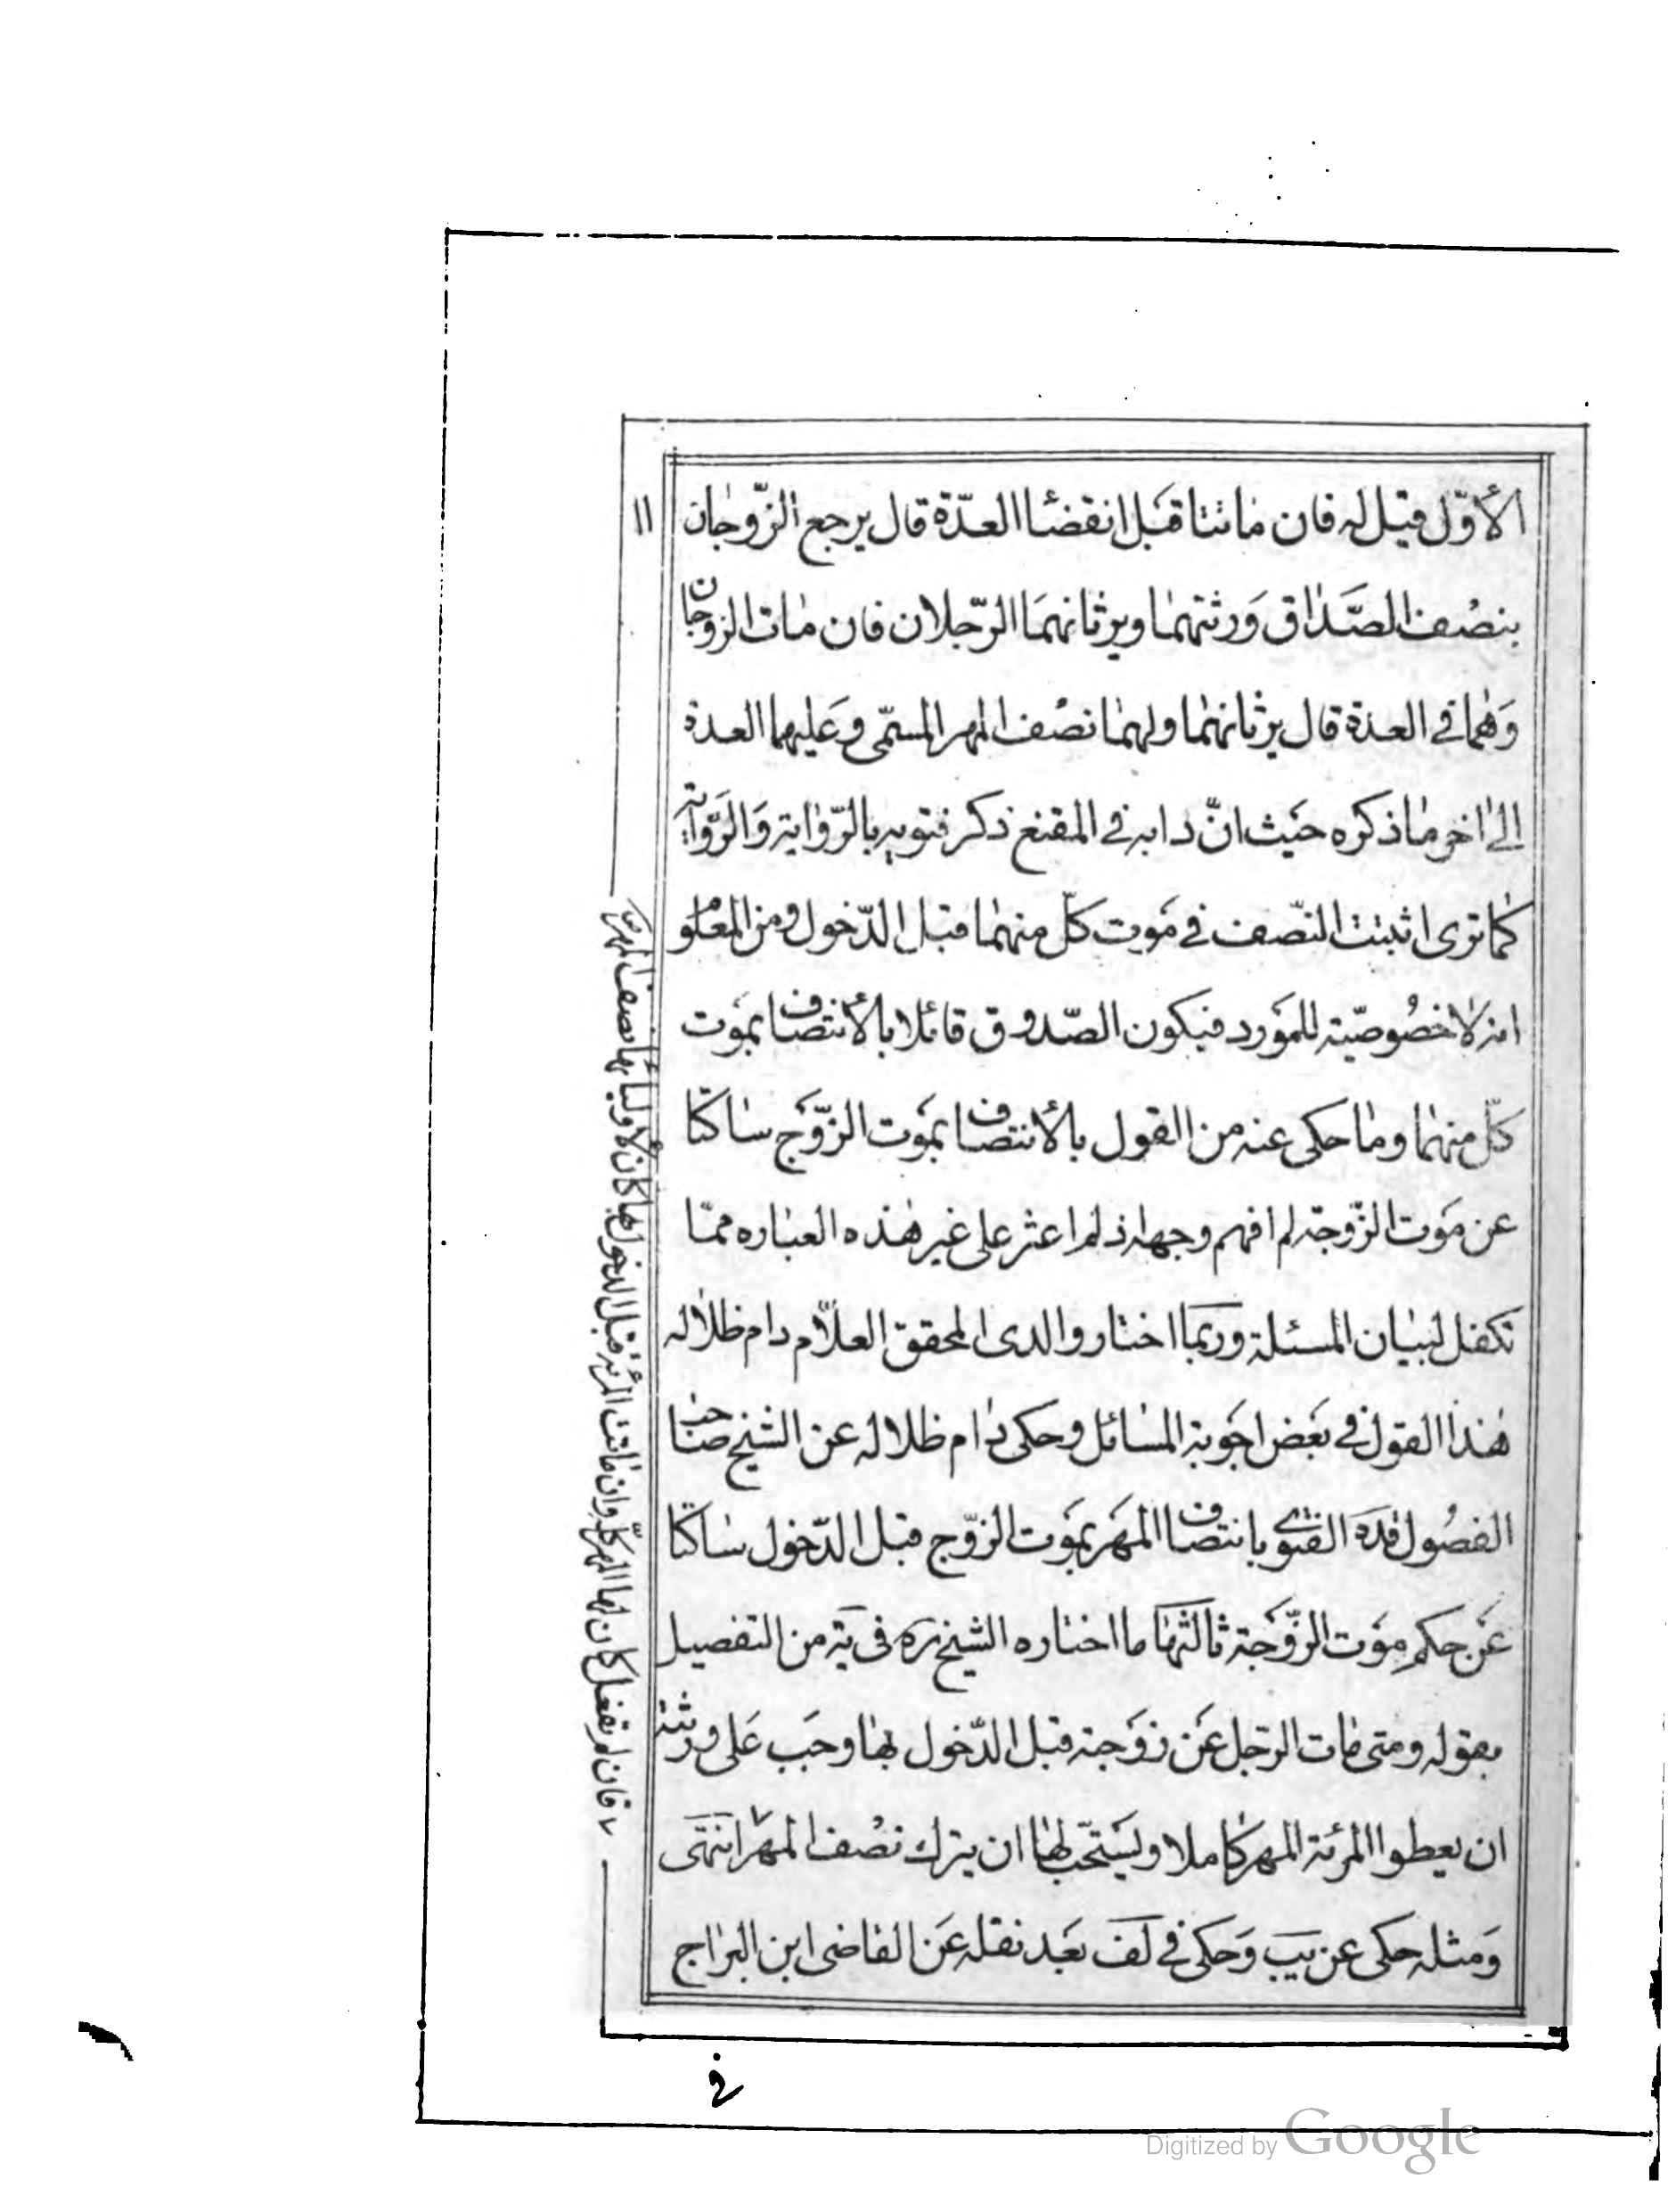 ١١
الأوّل قيل له فان ماتتا قبل انقضا العدّة قال يرجع الزّوجان
بنصف الصّداق ورثتهما ويرثانهما الرّجلان فان مات الزوجان
وهما في العدة قال يرثانهما ولهما نصف المهر المسمّى وعليهما العدة
إلى اخر ما ذكره حيث انّ دابه في المقنع ذكر فتويه بالرّواية والرّواية
كما ترى اثبتت النّصف في موت كلّ منهما قبل الدّخول ومن المعلو
انه لا خصوصيّة للمورد فيكون الصّدوق قائلا بالأنتصاف بموت
كلّ منهما وما حكى عنه من القول بالأنتصاف بموت الزّوج ساكتا
عن موت الزّوجة لم افهم وجهه اذ لم اعثر على غير هذه العباره ممّا
تكفل لبيان المسئلة وربما اختار والدى المحقق العلّام دام ظلاله
هذا القول في بعض اجوبة المسائل وحكى دام ظلاله عن الشيخ صاحب
الفصول قده الفتوى بانتصاف المهر بموت الزوّج قبل الدّخول ساكتا
عن حكم موت الزّوجة ثالثها ما اختاره الشيخ ره في ية من التفصيل
بقوله ومتى مات الرّجل عن زوجته قبل الدّخول بها وجب على ورثته
ان يعطوا المرئة المهر كاملا ويستحّب لها ان يترك نصف المهر انتهى
ومثله حكى عن يب وحكى في لف بعد نقله عن القاضى ابن البراج
فان لم تفعل كان لها المهر كلّه وان ماتت المرئة قبل الدخول بها كان لأوليائها نصف المهر
في
Digitized by Google